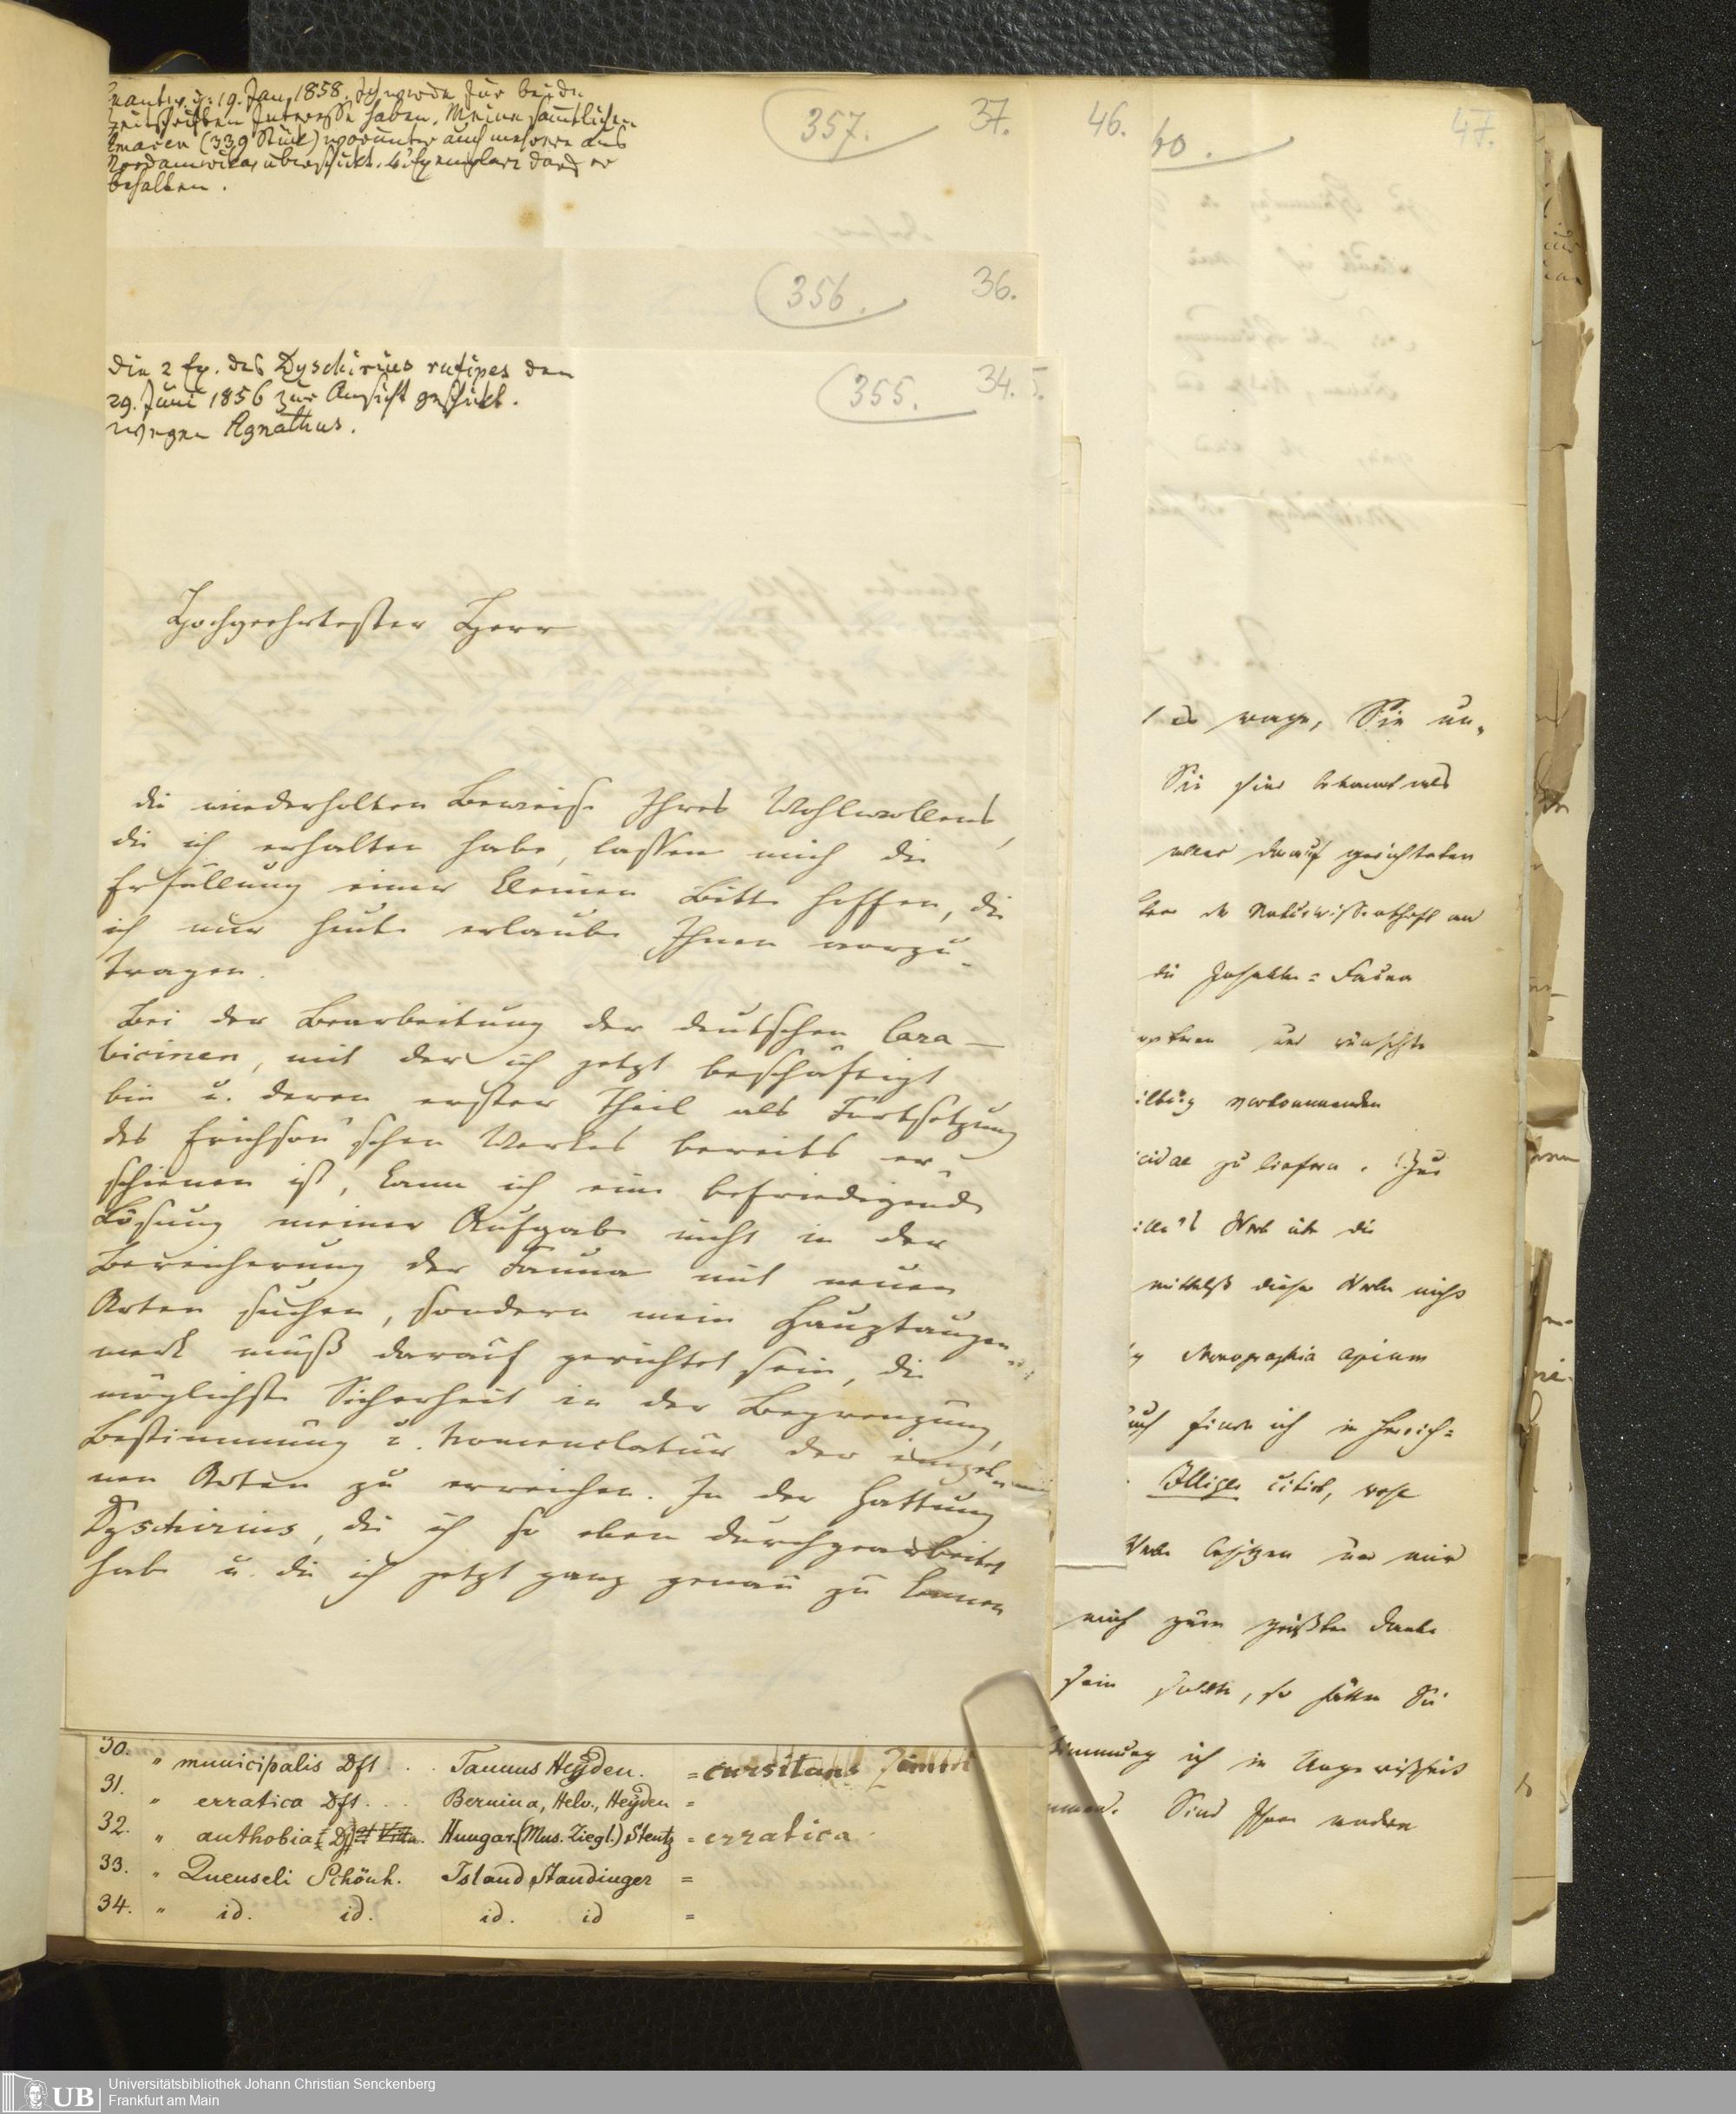 d. 19. Jan. 1858. Ich werde für beide
Zeitschriften Interesse haben. Meine sämtlichen
Amaren (339 Stück) worunter auch mehrere aus
Nordamerika, überschickt. 4 Exemplare darf er
behalten.
357.
37.
46.
60.
47.
356.
36.
die 2 Ex. des Dyschirius rufipes den
29. Juni 1856 zur Ansicht geschickt.
wegen Agnathus.
355.
34.
5.
Hochgeehrtester Herr
die wiederholten Beweise Ihres Wohlwollens,
die ich erhalten habe, lassen mich die
Erfüllung einer kleinen Bitte hoffen, die
ich mir heute erlaube Ihnen vorzu-
tragen.
Bei der Bearbeitung der deutschen Cara-
bicinen, mit der ich jetzt beschäftigt
bin u. deren erster Theil als Fortsetzung
des Erichson'schen Werkes bereits er-
schienen ist, kann ich eine befriedigende
Lösung meiner Aufgabe nicht in der
Bereicherung der Fauna mit neuen
Arten suchen, sondern mein Hauptaugen-
merk muß darauf gerichtet sein, die
möglichste Sicherheit in der Begrenzung,
Bestimmung u. Nomenclatur der einzel-
nen Arten zu erreichen. In der Gattung
Dyschirius, die ich so eben durchgearbeitet
habe u. die ich jetzt ganz genau zu kennen
30. " municipalis Dft. . . Taunus Heyden. = cursitans Zimm
31. " erratica Dft. . . . Bernina, Helv., Heyden =
32. " anthobia Hungar. (Mus. Ziegl.) Stentz = erratica
33. " Quenseli Schönh. Island Staudinger =
34. " id. id. id. id =
es wage, Sie un-
Sie hier bekannt als
aller darauf gerichteten
der Naturwissenschaft an
die Insekten=Fauna
und wünschte
vorkommenden
zu liefern. Zur
Werk über die
mittelst dieser Werke nicht
Monographia apium
auch finde ich in Herrich=
Illiger citirt, wo
Werke besitzen und mir
mich zum größten Danke
sein sollte, so hätten Sie
ich in Ungewißheit
Sind Ihnen andere
Universitätsbibliothek Johann Christian Senckenberg
Frankfurt am Main
UB